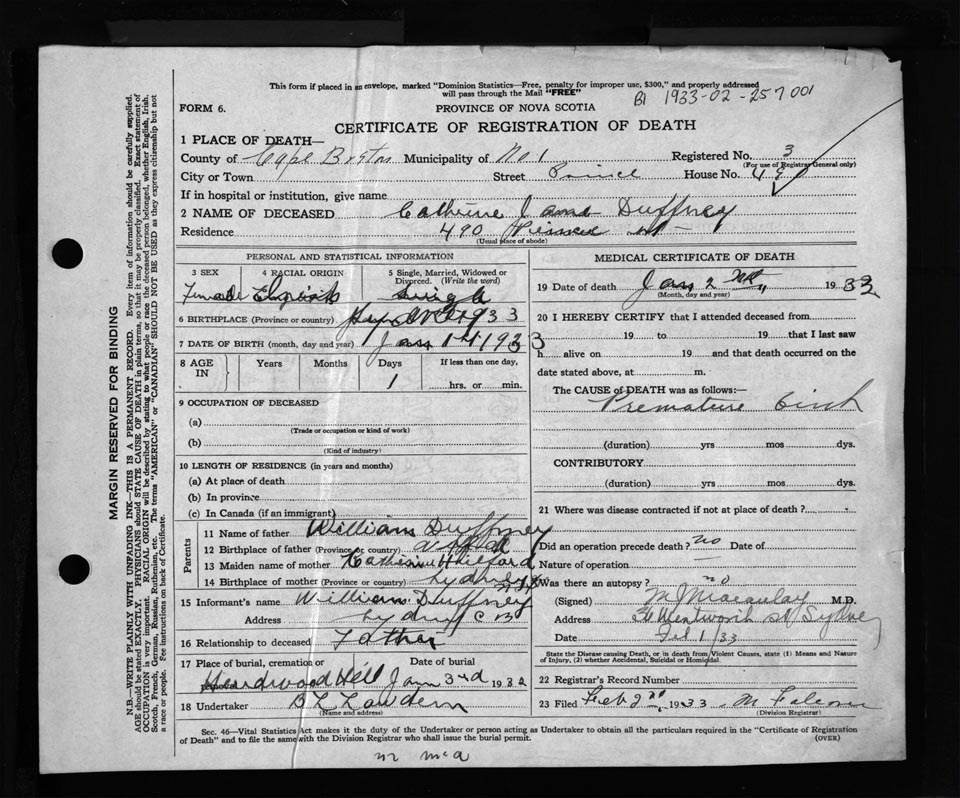 This form if placed in an envelope, marked "Dominion Statistics—Free, penalty for improper use, $300," and properly addressed
will pass through the Mail "FREE"
B1 1933-02-257001
FORM 6.
PROVINCE OF NOVA SCOTIA
CERTIFICATE OF REGISTRATION OF DEATH
1 PLACE OF DEATH—
County of Cape Breton Municipality of No 1 Registered No. 3
(For use of Registrar General only)
City or Town Street Prince House No. 490
If in hospital or institution, give name
2 NAME OF DECEASED Catherine Jane Duffney
Residence 490 St
(Usual place of abode)
PERSONAL AND STATISTICAL INFORMATION
3 SEX 4 RACIAL ORIGIN 5 Single, Married, Widowed or Divorced. (Write the word)
Female single
6 BIRTHPLACE (Province or country)
7 DATE OF BIRTH (month, day and year) Jan 1st 1933
8 AGE IN Years Months Days If less than one day,
1 hrs. or min.
9 OCCUPATION OF DECEASED
(a)
(Trade or occupation or kind of work)
(b)
(Kind of industry)
10 LENGTH OF RESIDENCE (in years and months)
(a) At place of death
(b) In province
(c) In Canada (if an immigrant)
Parents
11 Name of father William Duffney
12 Birthplace of father (Province or country)
13 Maiden name of mother
14 Birthplace of mother (Province or country) Sydney
15 Informant's name William Duffney
Address Sydney C B
16 Relationship to deceased Father
17 Place of burial, cremation or removal Date of burial
Hardwood Hill Jan 3rd 193
18 Undertaker
(Name and address)
MEDICAL CERTIFICATE OF DEATH
19 Date of death Jan 2nd 1933
(Month, day and year)
20 I HEREBY CERTIFY that I attended deceased from
19 to 19 that I last saw
h alive on 19 and that death occurred on the
date stated above, at m.
The CAUSE of DEATH was as follows:—
Premature birth
(duration) yrs mos dys.
CONTRIBUTORY
(duration) yrs mos dys.
21 Where was disease contracted if not at place of death?
Did an operation precede death? no Date of
Nature of operation —
Was there an autopsy? no
(Signed) M Macaulay M.D.
Address 36 Wentworth St Sydney
Date Feb 1/33
State the Disease causing Death, or in death from Violent Causes, state (1) Means and Nature
of Injury, (2) whether Accidental, Suicidal or Homicidal.
22 Registrar's Record Number
23 Filed Feb 2nd 1933
(Division Registrar)
Sec. 46—Vital Statistics Act makes it the duty of the Undertaker or person acting as Undertaker to obtain all the particulars required in the "Certificate of Registration
of Death" and to file the same with the Division Registrar who shall issue the burial permit. (OVER)
MARGIN RESERVED FOR BINDING
N.B.—WRITE PLAINLY WITH UNFADING INK—THIS IS A PERMANENT RECORD. Every item of information should be carefully supplied.
AGE should be stated EXACTLY. PHYSICIANS should STATE CAUSE OF DEATH in plain terms, so that it may be properly classified. Exact statement of
OCCUPATION is very important. RACIAL ORIGIN will be described by stating to what people or race the deceased person belonged, whether English, Irish,
Scotch, French, German, Russian, Ruthenian, etc. The terms "AMERICAN" or "CANADIAN" SHOULD NOT BE USED as they express citizenship but not
a race or people. Fee instructions on back of Certificate.